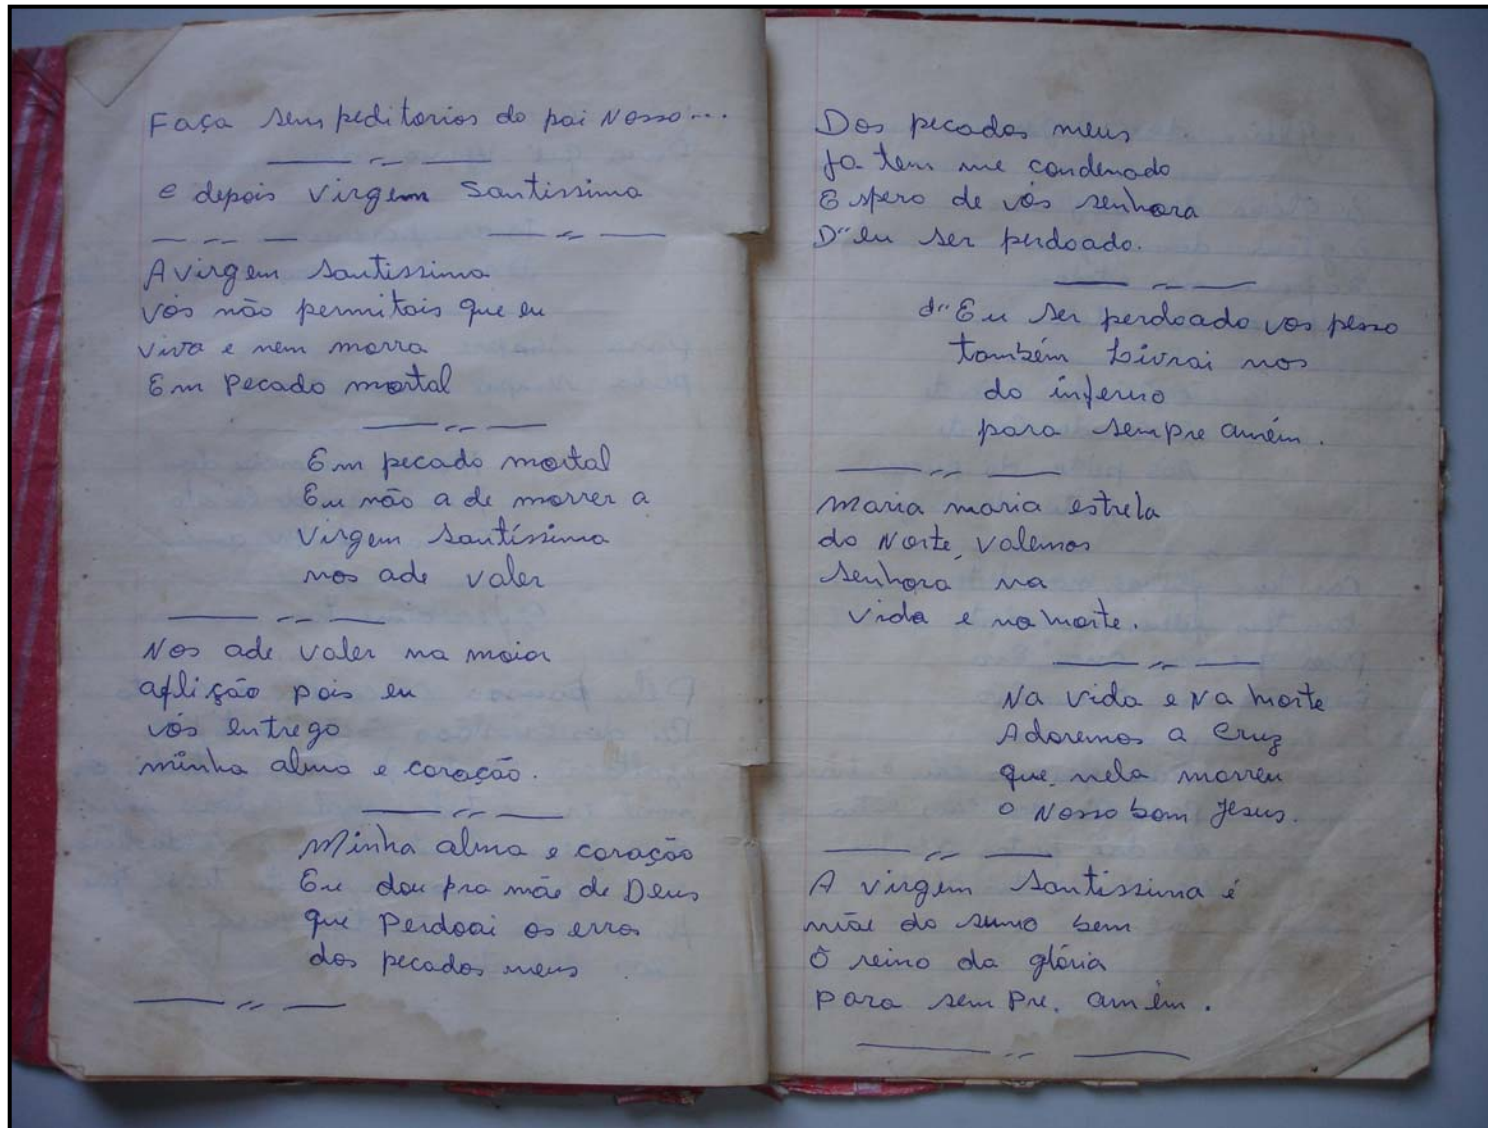 Faça seus peditorios do pai Nosso...
e depois Virgem Santissima
A virgem Santissima
vós não permitais que eu
viva e nem morra
Em Pecado mortal
Em pecado mortal
Eu não a de morrer a
Virgem Santíssima
nos ade valer
Nos ade valer na maior
aflição pois eu
vós entrego
minha alma e coração.
Minha alma e coração
Eu dou pra mãe de Deus
que Perdoai os erros
dos pecados meus
Dos pecados meus
Ja tem me condenado
Espero de vós senhora
D"eu ser perdoado.
d"Eu ser perdoado vos pesso
também Livrai nos
do inferno
para sempre amém.
Maria maria estrela
do Norte, valemos
Senhora na
vida e na morte.
Na vida e Na morte
Adoremos a Cruz
que nela morreu
o Nosso bom Jesus.
A virgem Santissima é
mãe do sumo bem
Ô reino da glória
Para sem Pre. amém.